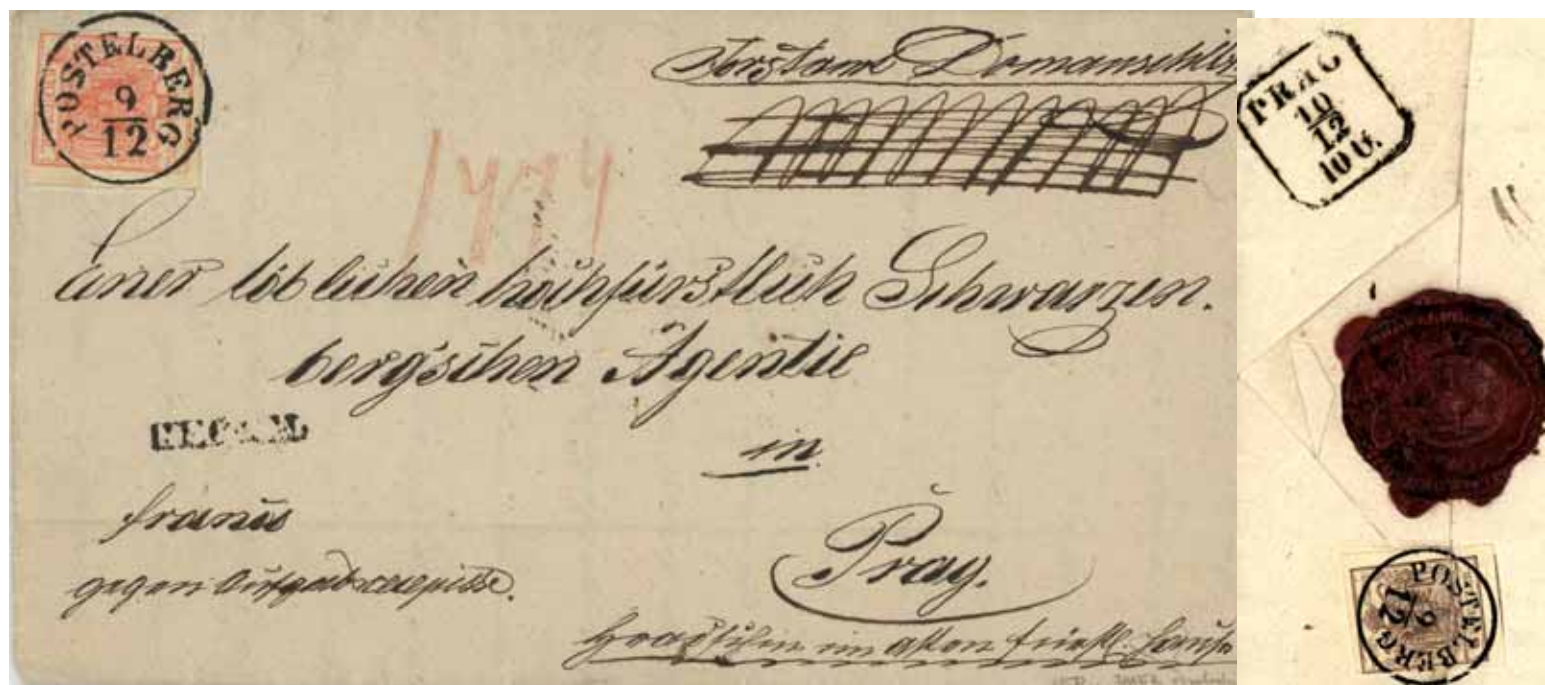 POSTELBERG
9
12
Forstamt Domanschitz
1474
Einer löblichen hochfürstlich Schwarzen.
berg'schen Agentie
in
RECOM.
Prag.
franco
gegen Aufgabsrecepisse.
Hradschin im alten fürstl. Hause
PRAG
10
12
10 U.
POSTELBERG
9
12